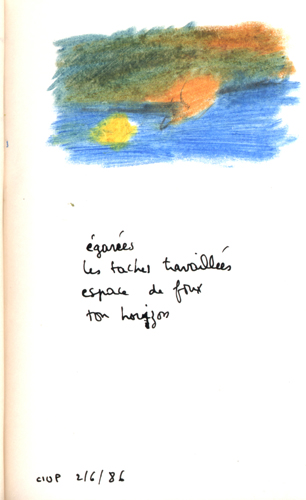 égarées
les taches travaillées
espace de
ton horizon
CIUP 2/6/86